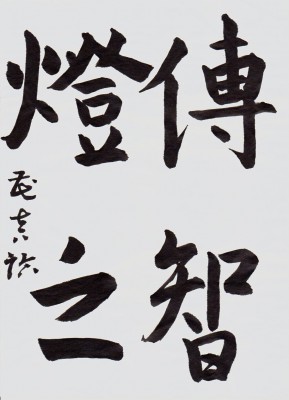 傳智
燈之